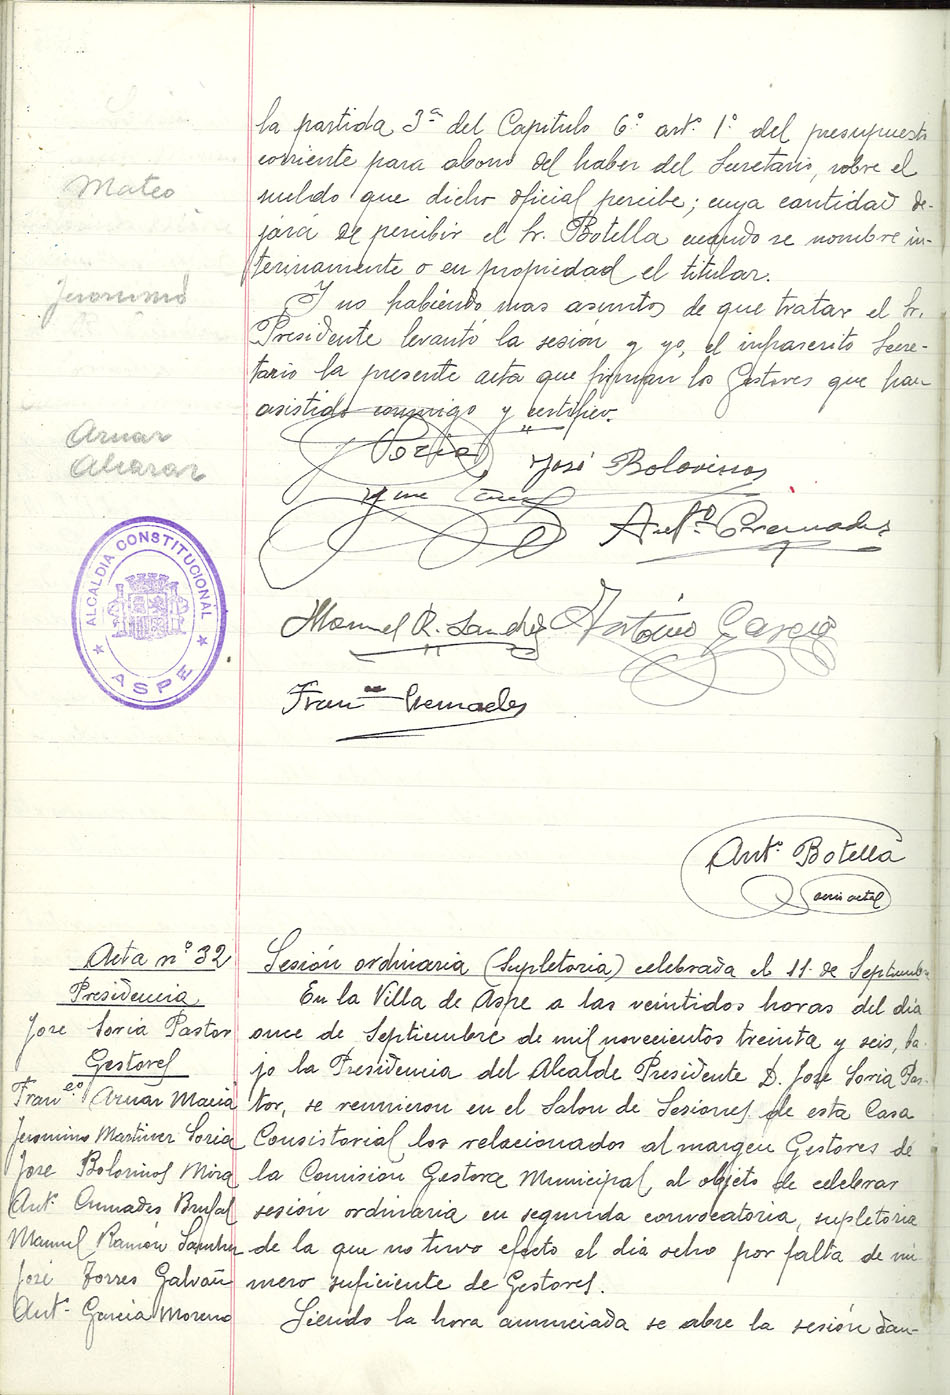 la partida 3ª del Capitulo 6º artº 1º del presupuesto
corriente para abono del haber del Secretario, sobre el
sueldo que dicho oficial percibe; cuya cantidad de-
jará de percibir el Sr. Botella cuando se nombre in-
terinamente o en propiedad el titular.
Y no habiendo mas asuntos de que tratar el Sr.
Presidente levantó la sesión y yo, el infrascrito Secre-
tario la presente acta que firman los Gestores que han
asistido conmigo y certifico.
Mateo
Jeronimo
Aznar
Alcaraz
J Soria
José Bolovinos
Antº Cremades
Manuel R. Sanchez
Antonio Garcia
Franco Cremades
ALCALDIA CONSTITUCIONAL
ASPE
Antº Botella
Acta nº 32
Presidencia
Jose Soria Pastor
Gestores
Franco Aznar Maciá
Jeronimo Martinez Soria
Jose Bolovinos Mira
Antº Cremades Brufal
Manuel Ramón Sanchez
José Torres Galvañ
Antº Garcia Moreno
Sesión ordinaria (Supletoria) celebrada el 11 de Septiembre
En la Villa de Aspe a las veintidos horas del dia
once de Septiembre de mil novecientos treinta y seis, ba-
jo la Presidencia del Alcalde Presidente D. Jose Soria Pas-
tor, se reunieron en el Salon de Sesiones de esta Casa
Consistorial los relacionados al margen Gestores de
la Comision Gestora Municipal, al objeto de celebrar
sesión ordinaria en segunda convocatoria, supletoria
de la que no tuvo efecto el dia ocho por falta de nú
mero suficiente de Gestores.
Siendo la hora anunciada se abre la sesión dan-